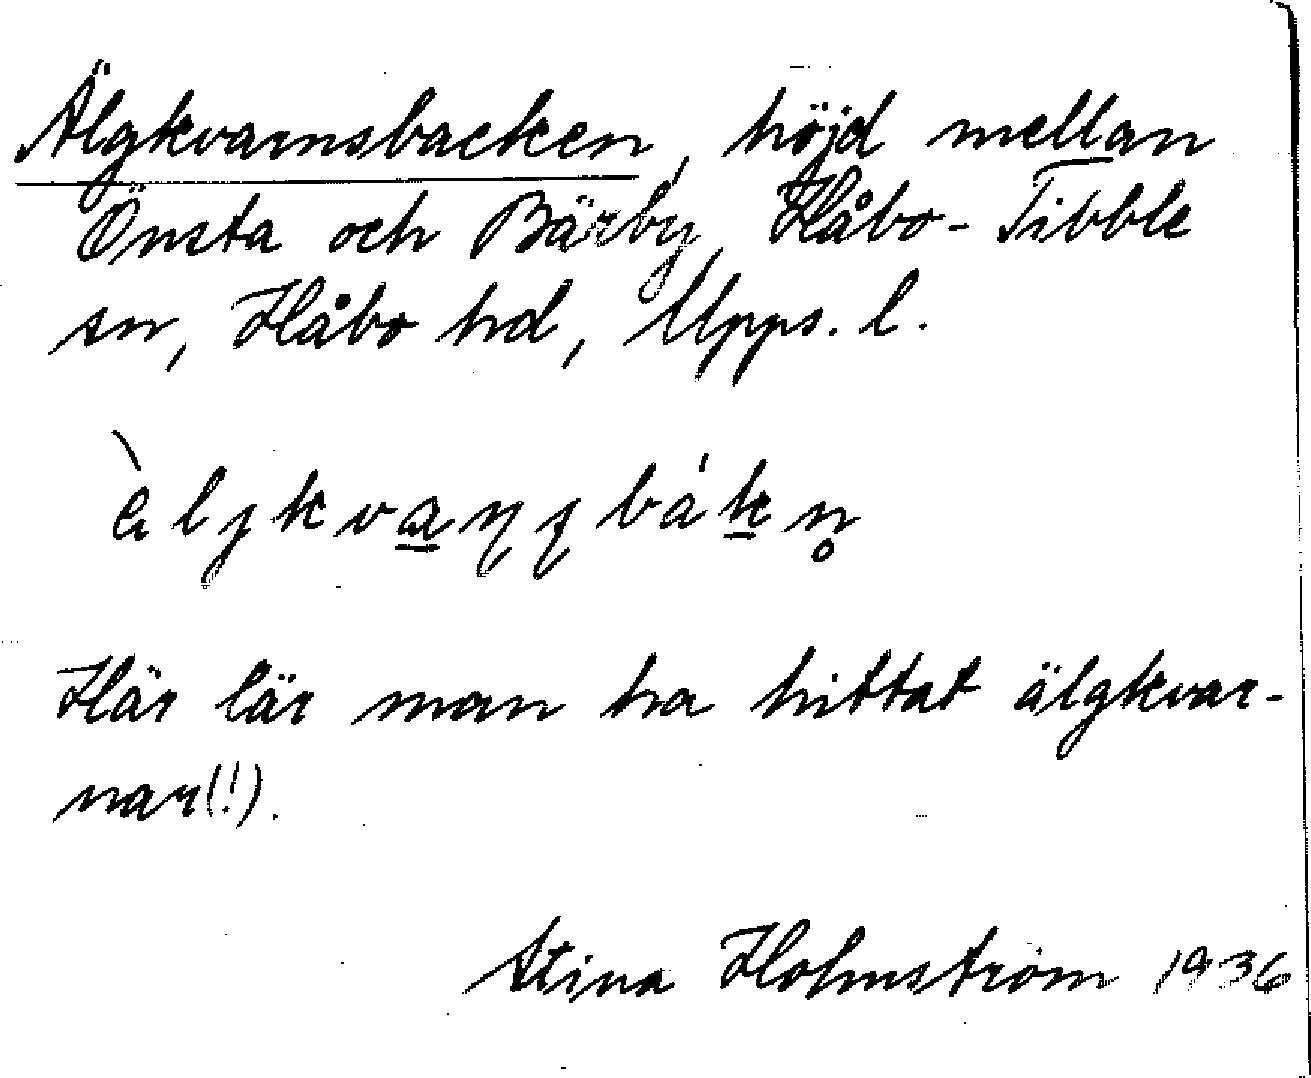 Älgkvarnsbacken, höjd mellan
Önsta och Bärby, Håbo-Tibble
sn, Håbo hd, Upps. l.
Här lär man ha hittat älgkvar-
nar(!).
Stina Holmström 1936